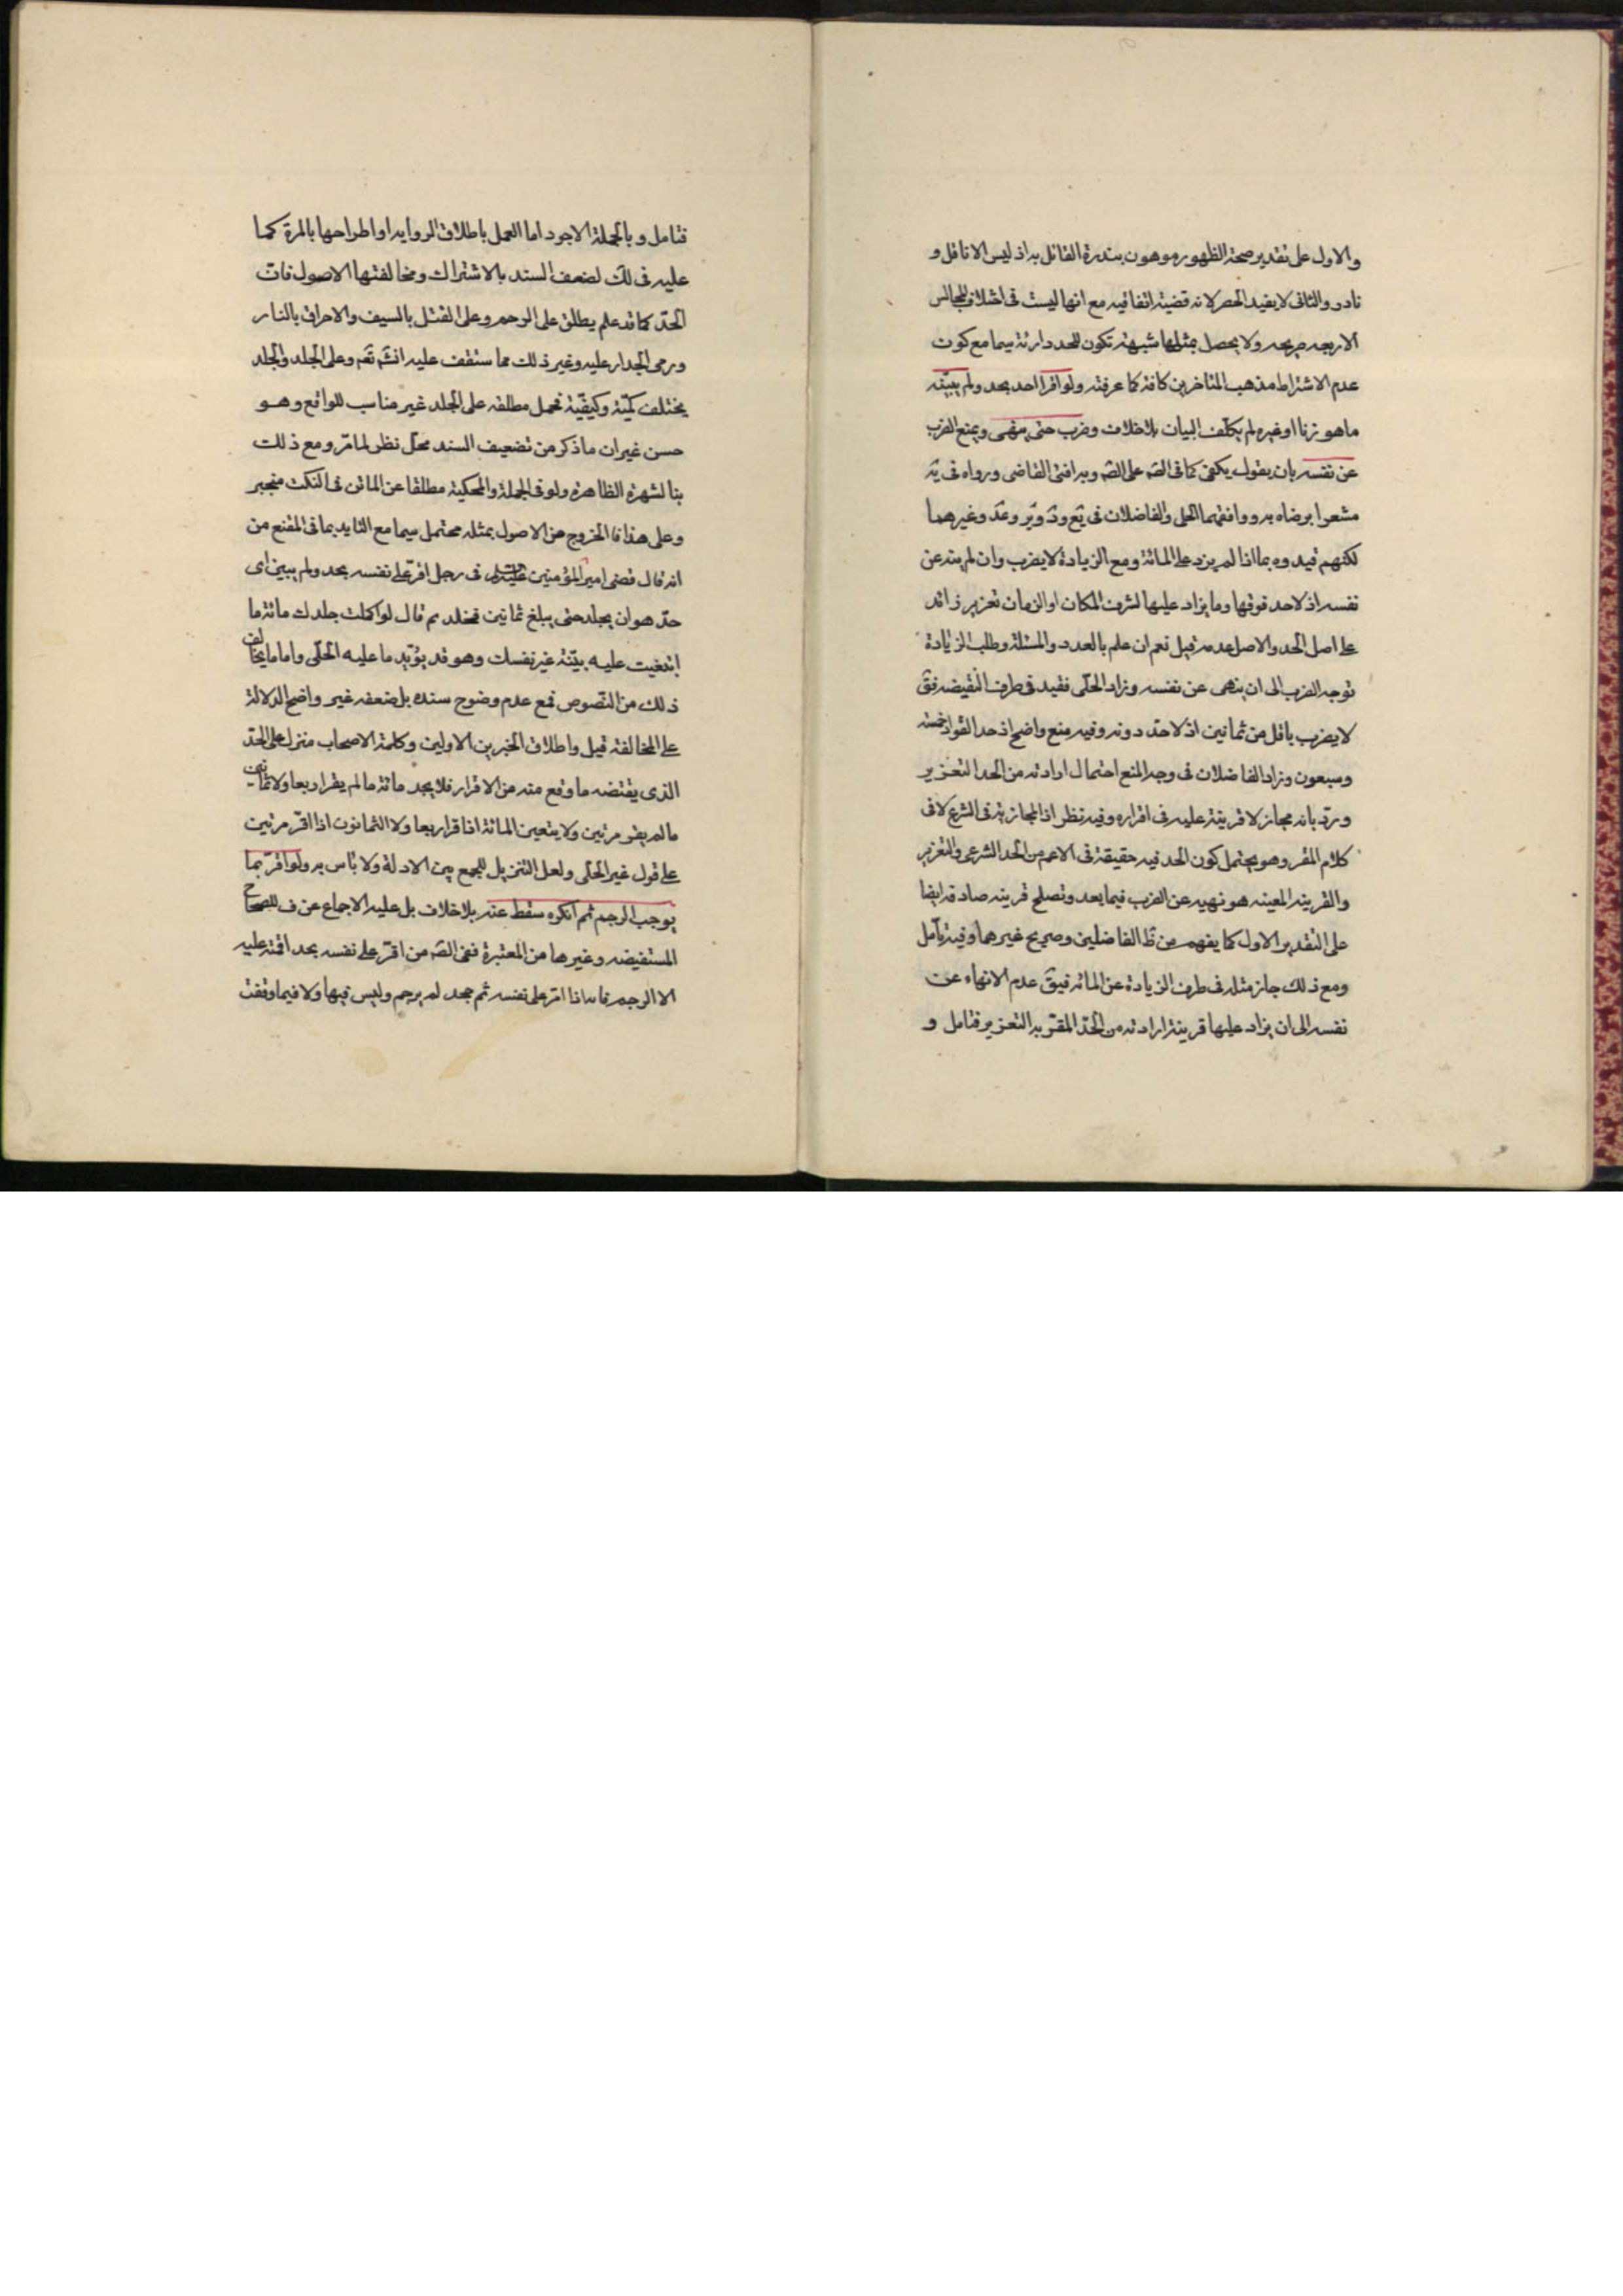 والاول على تقدير صحة الظهور موهون بندرة القائل به اذ ليس الا ناقل و
نادر والثانى لا يفيد الحصر لانه قضية اتفاقيه مع انها ليست فى اختلاف المجالس
الاربعه صريحه ولا يحصل بمثلها شبهة تكون للحد دارئة سيما مع كون
عدم الاشتراط مذهب المتاخرين كافة كما عرفته ولو اقر احد بحد ولم يبينه
ما هو زنا او غيره لم يكلف البيان بلا خلاف وضرب حتى ينهى ويمنع الضرب
عن نفسه بان يقول يكفى كما فى الصَه على الصَه وبه افتى القاضى ورواه فى يَه
مشعرا برضاه به ووافقهما الحلى والفاضلان فى يَع ودَ ويَر وعَد وغيرهما
لكنهم قيدوه بما اذا لم يزد على المائة ومع الزيادة لا يضرب وان لم ينه عن
نفسه اذ لا حد فوقها وما يزاد عليها لشرف المكان او الزمان تعزير زائد
على اصل الحد والاصل عدمه قيل نعم ان علم بالعدد والمسئلة وطلب الزيادة
توجه الضرب الى ان ينهى عن نفسه وزاد الحلى فقيد فى طرف النقيضه فقَ
لا يضرب باقل من ثمانين اذ لا حد دونه وفيه منع واضح اذ حد القواد خمسة
وسبعون وزاد الفاضلان فى وجه المنع احتمال ارادته من الحد التعزير
وردّ بانه مجاز لا قرينة عليه فى اقراره وفيه نظر اذ المجازية فى الشرع لا فى
كلام المقر وهو يحتمل كون الحد فيه حقيقة فى الاعم من الحد الشرعى والتعزير
والقرينه المعينه هو نهيه عن الضرب فيما بعد وتصلح قرينه صادقه ايضا
على التقدير الاول كما يفهم من ظَ الفاضلين وصريح غيرهما وفيه تأمل
ومع ذلك جاز مثله فى طرف الزيادة عن المائه فيقَ عدم الانهاء عن
نفسه الى ان يزاد عليها قرينة ارادته من الحد المقر به التعزير فتامل و
فتامل وبالجملة الاجود اما العمل باطلاق الروايه او اطراحها بالمرة كما
عليه فى لك لضعف السند بالاشتراك ومخالفتها الاصول فان
الحدّ كما قد علم يطلق على الرجم وعلى القتل بالسيف والاحراق بالنار
ورمى الجدار عليه وغير ذلك مما ستقف عليه انشَه تعَم وعلى الجلد والجلد
يختلف كميّة وكيفيّة فحمل مطلقه على الجلد غير مناسب للواقع وهو
حسن غير ان ما ذكر من تضعيف السند محل نظر لما مرّ ومع ذلك
بنا لشهرة الظاهرة ولو فى الجملة والمحكية مطلقا عن الماتن فى النكت منجبر
وعلى هذا فالخروج عن الاصول بمثله محتمل سيما مع التايد بما فى المقنع من
انه قال قضى امير المؤمنين عليه السلم فى رجل اقر على نفسه بحد ولم يبين اى
حدّ هو ان يجلد حتى يبلغ ثمانين فجلد ثم قال لو اكملت جلدك مائة ما
ابتغيت عليه بيّنة غير نفسك وهو قد يؤيد ما عليه الحلّى واما ما يخالف
ذلك من النصوص فمع عدم وضوح سنده بل ضعفه غير واضح الدلالة
على المخالفة قيل واطلاق الخبرين الاولين وكلمة الاصحاب منزل على الحدّ
الذى يقتضه ما وقع منه من الاقرار فلا يحد مائة ما لم يقر اربعا ولا ثمانين
ما لم يقر مرتين ولا يتعين المائة اذا قر اربعا ولا الثمانون اذا اقرّ مرتين
على قول غير الحلى ولعل التنزيل للجمع بين الادلة ولا بأس به ولو اقرّ بما
يوجب الرجم ثم انكره سقط عنه بلا خلاف بل عليه الاجماع عن ف للصحاح
المستفيضه وغيرها من المعتبرة ففى الصَه من اقرّ على نفسه بحد اقمته عليه
الا الرجم فانه اذا اقر على نفسه ثم جحد لم يرجم وليس فيها ولا فيما وقفت